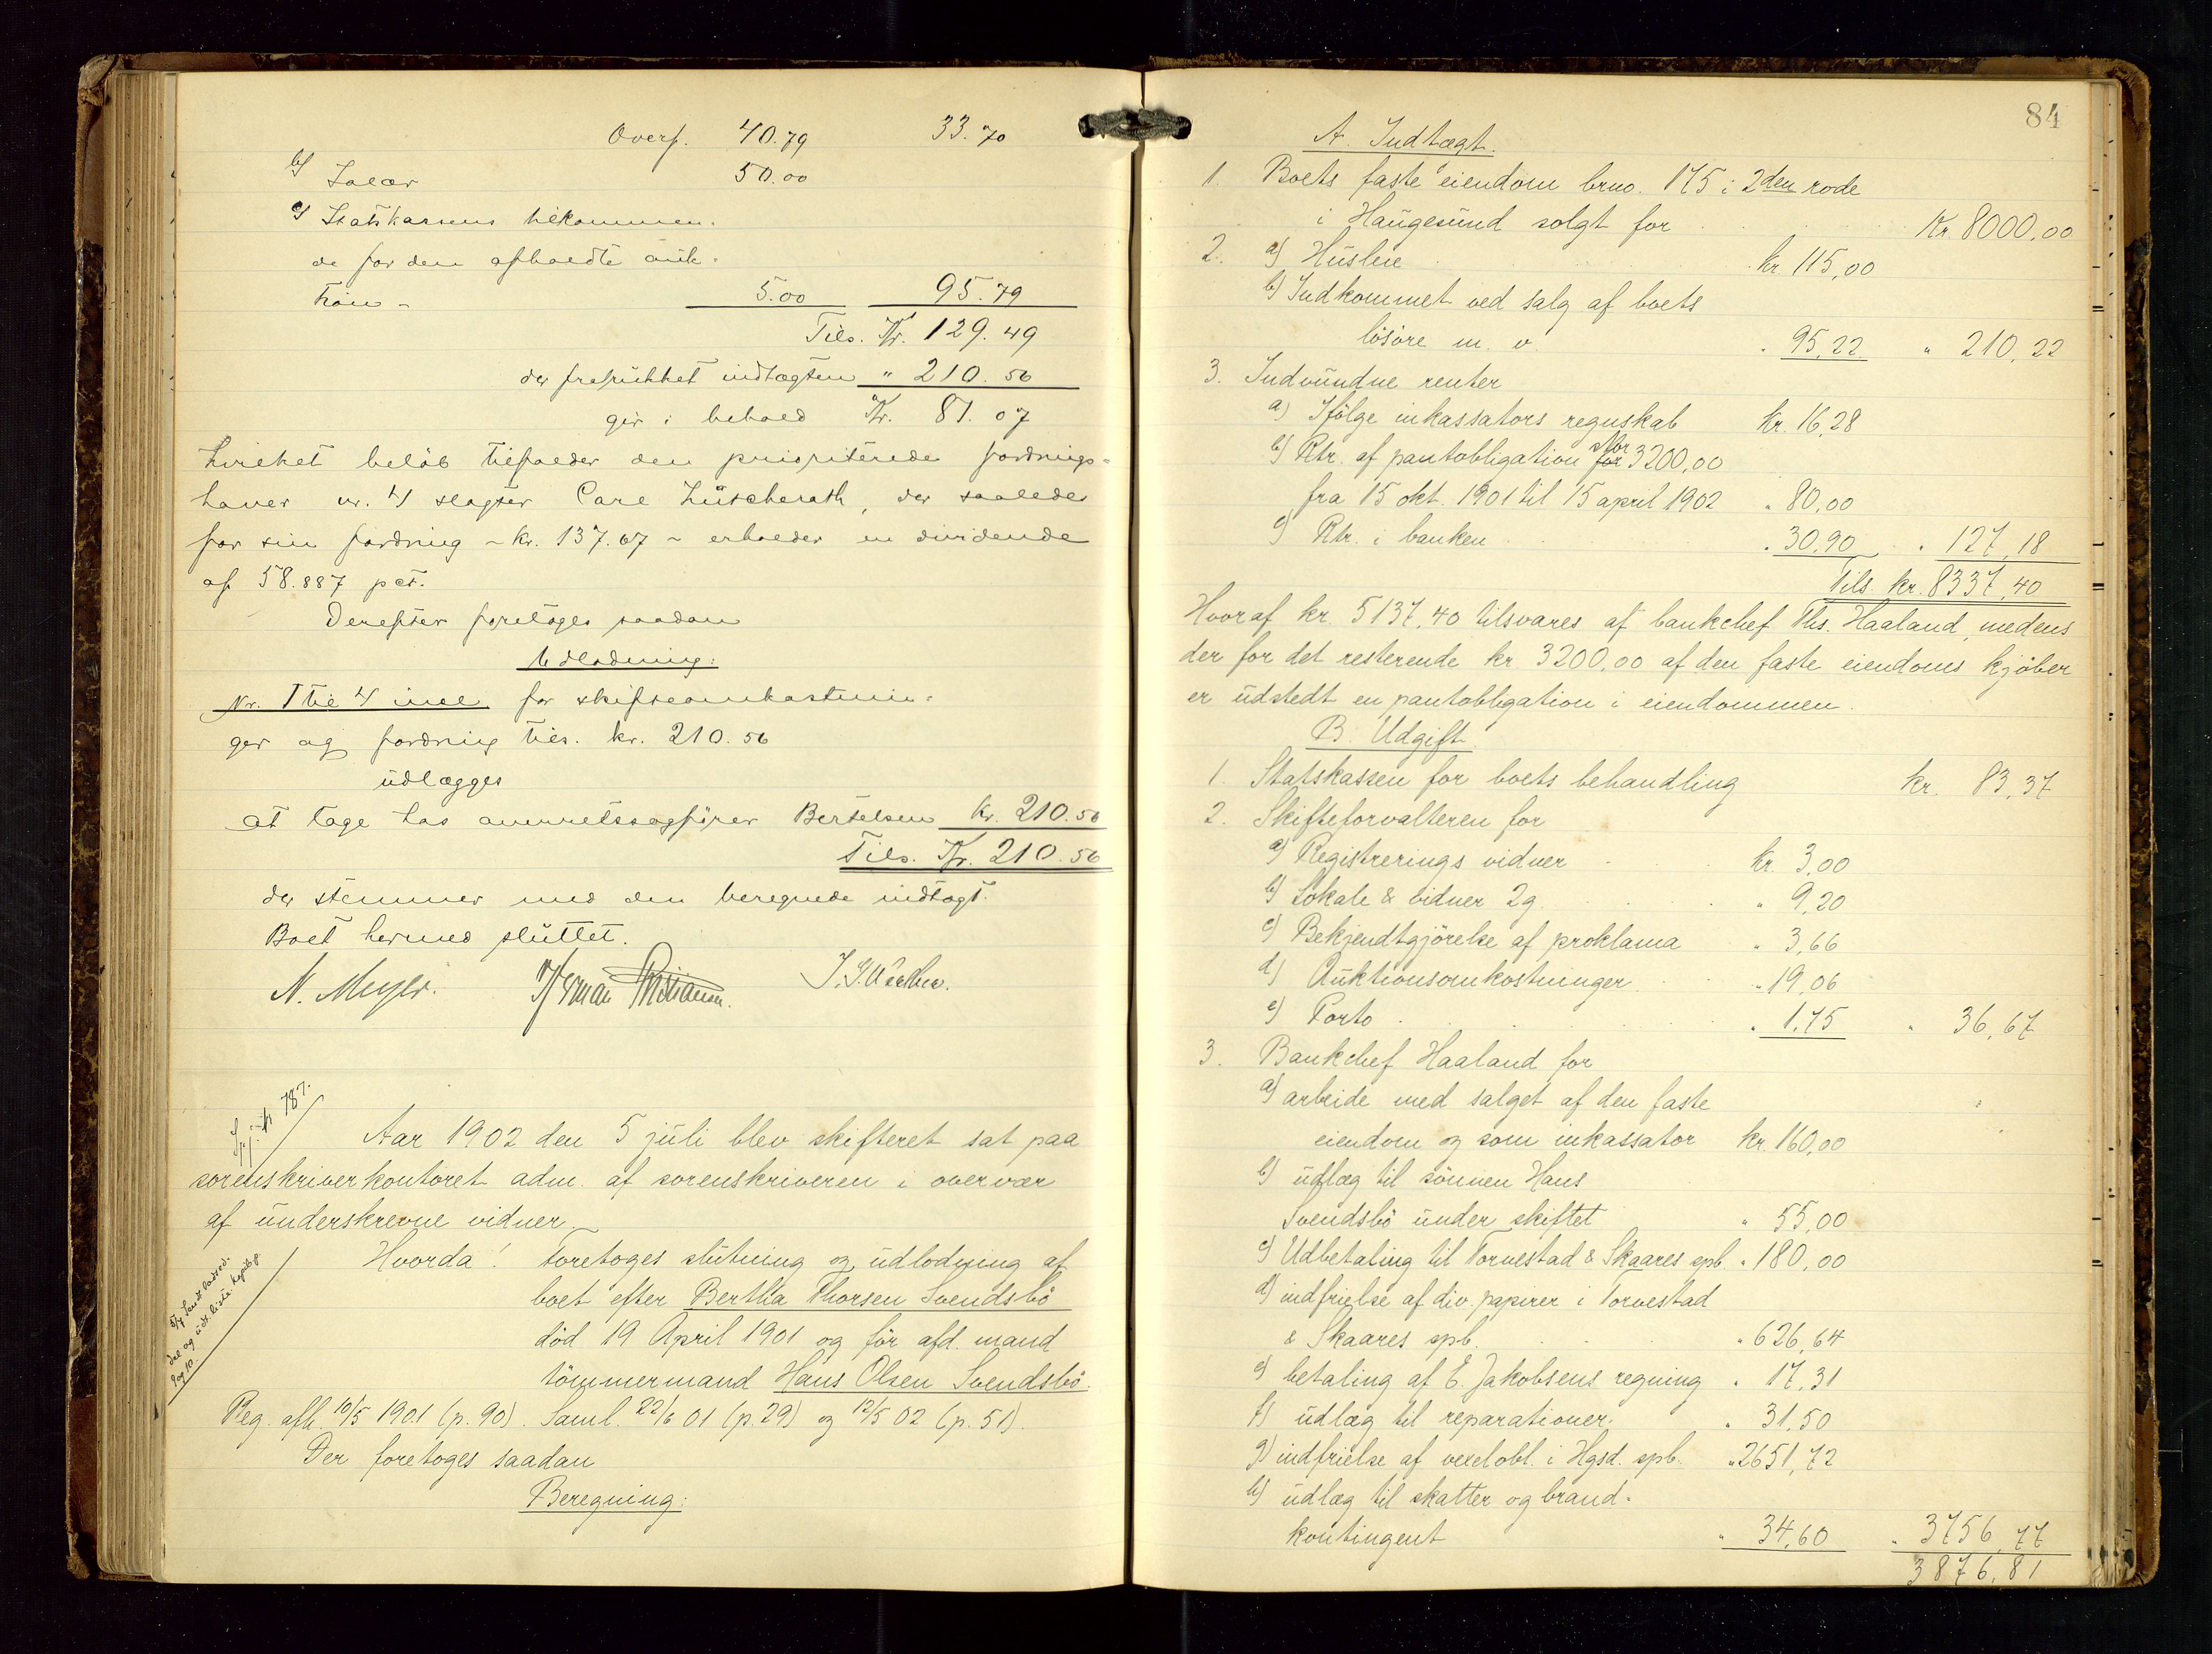 Overf. 40.79 33.70
b) Salær 50.00
c) Statskassens tilkommen-
de for den afholdte auk-
tion - 5.00 95.79
Tils. Kr. 129.49
der fratrukket indtægten " 210.56
gir i behold Kr. 81.07
hvilket beløb tilfalder den prioriterede fordrings-
haver nr. 4 slagter Carl Lütcherath, der saaledes
for sin fordring - kr. 137.67 - erholder en dividende
af 58.887 pct.
Derefter foretoges saadan
Udlodning:
Nr. 1 til 4 incl. for skifteomkostnin-
ger og fordring tils. kr. 210.56
udlægges
at tage hos overretssagfører Bertelsen kr. 210.56
Tils. Kr. 210.56
der stemmer med den beregnede indtægt.
Boet hermed sluttet.
N. Meyer. Herman Kristiansen.
187.
Aar 1902 den 5 juli blev skifteret sat paa
sorenskriverkontoret adm. af sorenskriveren i overvær
af underskrevne vidner
Hvorda! Foretoges slutning og udlodning af
boet efter Bertha Thorsen Svendsbö
död 19 April 1901 og før afd. mand
tömmermand Hans Olsen Svendsbö.
Reg. afh. 10/5 1901 (p. 90). Saml. 22/6 01 (p. 29) og 12/5 02 (p. 51).
Der foretoges saadan
Beregning:
84
A. Indtægt.
1. Boets faste eiendom brno. 175 i 2den rode
i Haugesund solgt for Kr. 8000,00
2. a) Husleie kr 115,00
b) Indkommet ved salg af boets
lösöre m. v. " 95,22 " 210,22
3. Indvundne renter
a) Ifölge inkassators regnskab kr. 16,28
b) Rtr. af pantobligation for 3200,00
fra 15 okt. 1901 til 15 april 1902 " 80,00
c) Rtr. i banken " 30,90 " 127,18
Tils. kr. 8337,40
Hvoraf kr. 5137,40 tilsvares af bankchef Ths. Haaland, medens
der for det resterende kr. 3200,00 af den faste eiendoms kjöber
er udstedt en pantobligation i eiendommen.
B. Udgift.
1. Statskassen for boets behandling kr. 83,37
2. Skifteforvalteren for
a) Registrerings vidner kr. 3,00
b) Lokale & vidner 2g. " 9,20
c) Bekjendtgjörelse af proklama " 3,66
d) Auktionsomkostninger " 19,06
e) Porto " 1,75 " 36,67
3. Bankchef Haaland for
a) arbeide med salget af den faste
eiendom og som inkassator kr. 160,00
b) udlæg til sönnen Hans
Svendsbö under skiftet " 55,00
c) Udbetaling til Torvestad & Skaares spb. " 180,00
d) indfrielse af div. papirer i Torvestad
& Skaares spb. " 626,64
e) betaling af E. Jakobsens regning " 17,31
f) udlæg til reparationer. " 31,50
g) indfrielse af vexelobl. i Hgsd. spb. " 2651,72
h) udlæg til skatter og brand-
kontingent " 34,60 " 3756,77
3876,81